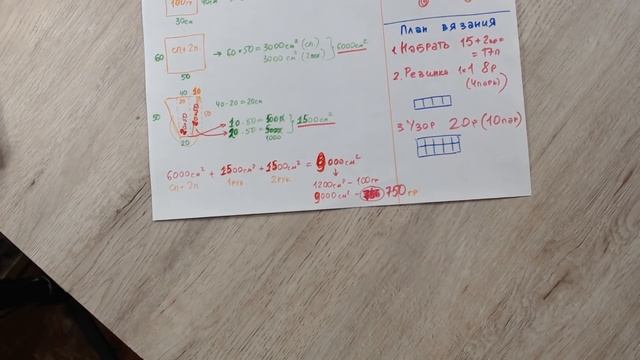 100гр
30см
60
сп+2п
50
→ 60*50=3000см² (сп)
3000см² (2пол)
6000см²
40 10
50
20
40-20=20см
10·50=
20·50=
1000
1500см²
6000см² + 1500см² + 1500см² = 9000см²
сп+2п 1рук 2рук
1200см² - 100гр
9000см² - 750гр
План вязания
1. Набрать 15+2кр=
= 17п
2. Резинка 1*1 8р
(4пары)
3 Узор 20р (10пар)